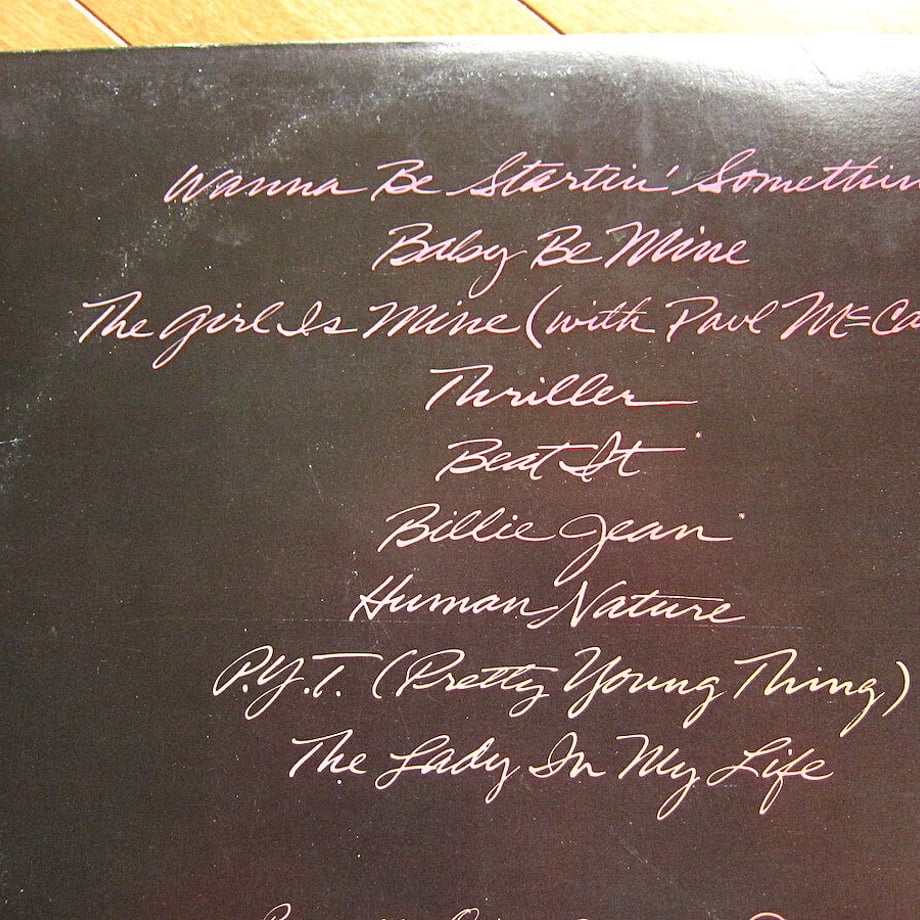 Wanna Be Startin' Somethin
Baby Be Mine
The Girl Is Mine (with Paul McCa
Thriller
Beat It*
Billie Jean*
Human Nature
P.Y.T. (Pretty Young Thing)
The Lady In My Life